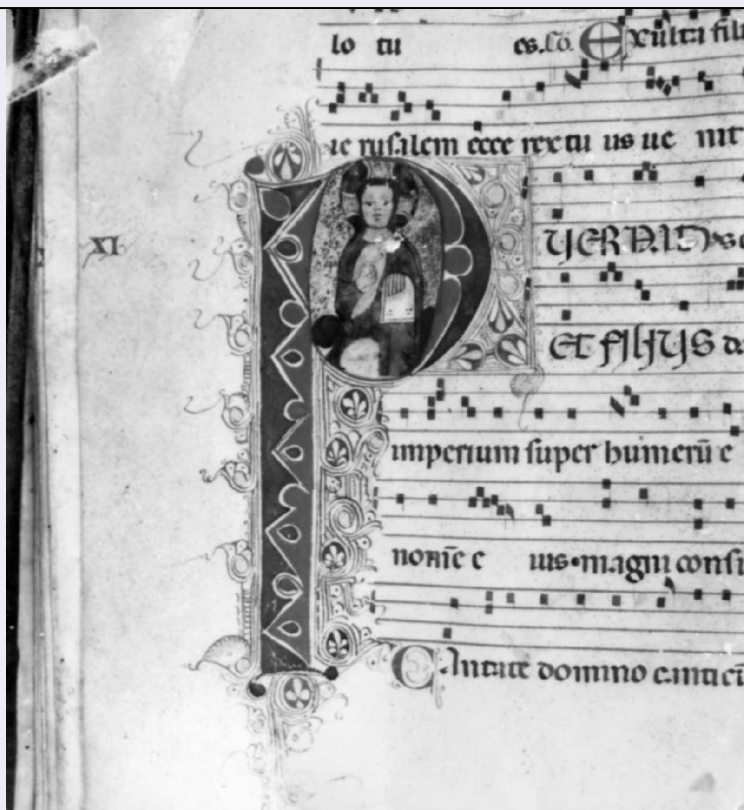 lo tu es. Cō. Exulta fili
ie rusalem ecce rex tu us ue nit
XI
PUER NAT
ET FILIUS da
imperium super humerū e
nom̄e e ius•magni consi
Cantate domino canticū